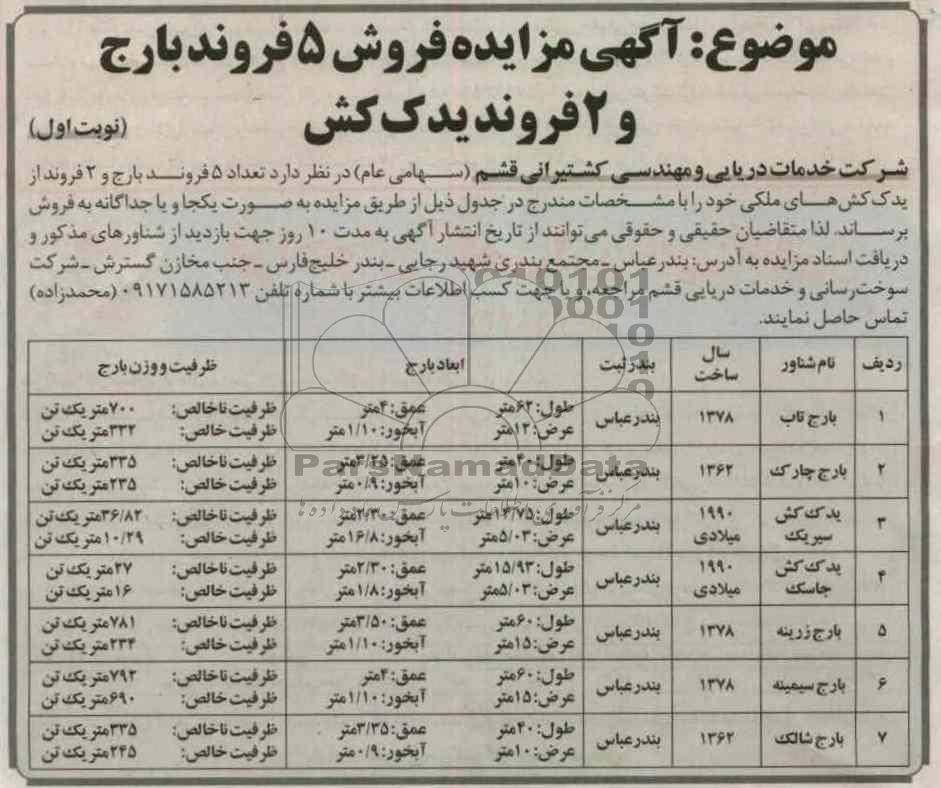 موضوع: آگهی مزایده فروش ۵ فروند بارج
و ۲ فروند یدک کش
(نوبت اول)
شرکت خدمات دریایی و مهندسی کشتیرانی قشم (سهامی عام) در نظر دارد تعداد ۵ فروند بارج و ۲ فروند از
یدک کش‌های ملکی خود را با مشخصات مندرج در جدول ذیل از طریق مزایده به صورت یکجا و یا جداگانه به فروش
برساند. لذا متقاضیان حقیقی و حقوقی می‌توانند از تاریخ انتشار آگهی به مدت ۱۰ روز جهت بازدید از شناورهای مذکور و
دریافت اسناد مزایده به آدرس: بندرعباس ـ مجتمع بندری شهید رجایی ـ بندر خلیج‌فارس ـ جنب مخازن گسترش ـ شرکت
سوخت‌رسانی و خدمات دریایی قشم مراجعه، و یا جهت کسب اطلاعات بیشتر با شماره تلفن ۰۹۱۷۱۵۸۵۲۱۳ (محمدزاده)
تماس حاصل نمایند.
ردیف نام شناور سال ساخت بندر ثبت ابعاد بارج ظرفیت و وزن بارج
۱ بارج تاب ۱۳۷۸ بندرعباس طول: ۶۲متر عمق: ۴متر ظرفیت ناخالص: ۷۰۰متریک تن
عرض: ۱۲متر آبخور: ۱/۱۰متر ظرفیت خالص: ۳۳۲متریک تن
۲ بارج چارک ۱۳۶۲ بندرعباس طول: ۴۰متر عمق: ۳/۲۵متر ظرفیت ناخالص: ۳۳۵متریک تن
عرض: ۱۰متر آبخور: ۰/۹متر ظرفیت خالص: ۲۳۵متریک تن
۳ یدک کش سیریک ۱۹۹۰ میلادی بندرعباس طول: ۱۴/۷۵متر عمق: ۲/۳۰متر ظرفیت ناخالص: ۳۶/۸۲متریک تن
عرض: ۵/۰۳متر آبخور: ۱۶/۸متر ظرفیت خالص: ۱۰/۲۹متریک تن
۴ یدک کش جاسک ۱۹۹۰ میلادی بندرعباس طول: ۱۵/۹۳متر عمق: ۲/۳۰متر ظرفیت ناخالص: ۲۷متریک تن
عرض: ۵/۰۳متر آبخور: ۱/۸متر ظرفیت خالص: ۱۶متریک تن
۵ بارج زرینه ۱۳۷۸ بندرعباس طول: ۶۰متر عمق: ۳/۵۰متر ظرفیت ناخالص: ۷۸۱متریک تن
عرض: ۱۵متر آبخور: ۱/۱۰متر ظرفیت خالص: ۲۳۴متریک تن
۶ بارج سیمینه ۱۳۷۸ بندرعباس طول: ۶۰متر عمق: ۴متر ظرفیت ناخالص: ۷۹۲متریک تن
عرض: ۱۵متر آبخور: ۱/۱۰متر ظرفیت خالص: ۶۹۰متریک تن
۷ بارج شالک ۱۳۶۲ بندرعباس طول: ۴۰متر عمق: ۳/۳۵متر ظرفیت ناخالص: ۳۳۵متریک تن
عرض: ۱۰متر آبخور: ۰/۹متر ظرفیت خالص: ۲۴۵متریک تن
ParsNamadData